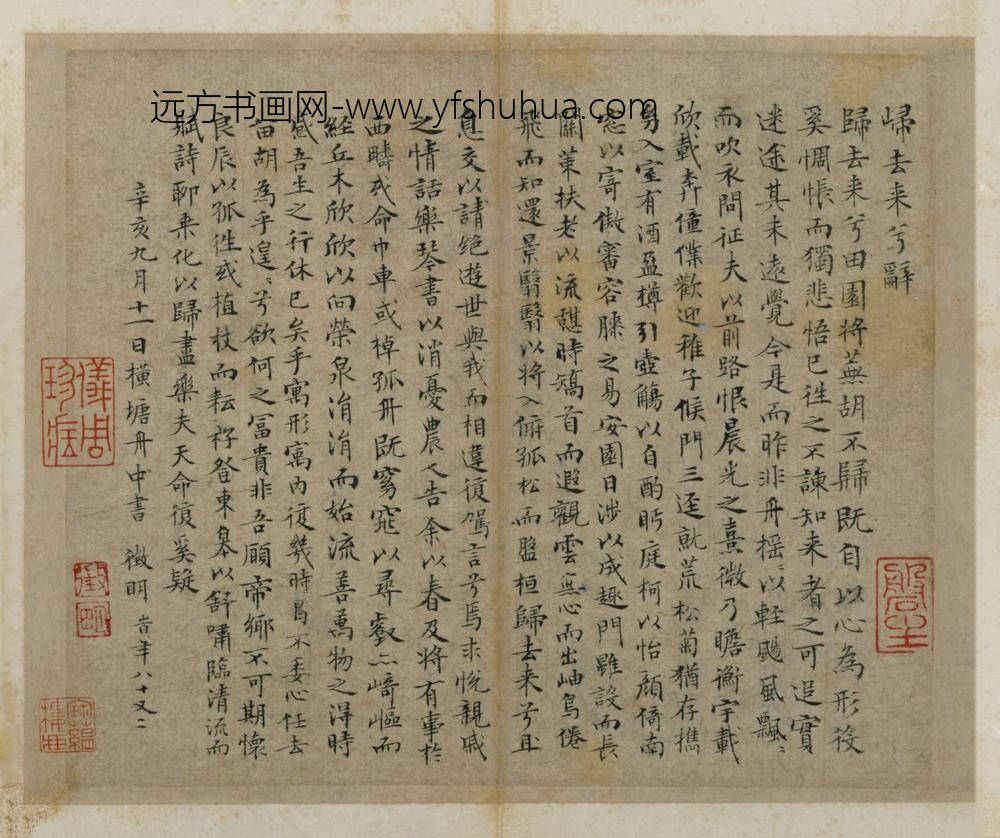 远方书画网-www.yfshuhua.com
歸去来兮辭
歸去来兮田園将蕪胡不歸既自以心為形役
奚惆悵而獨悲悟已往之不諫知来者之可追實
迷途其未遠覺今是而昨非舟摇〻以輕颺風飄〻
而吹衣問征夫以前路恨晨光之熹微乃瞻衡宇載
欣載奔僮僕歡迎稚子候門三逕就荒松菊猶存攜
幼入室有酒盈樽引壺觴以自酌眄庭柯以怡顔倚南
窓以寄傲審容膝之易安園日涉以成趣門雖設而長
關策扶老以流憇時矯首而遐觀雲無心而出岫鳥倦
飛而知還景翳翳以將入孤松而盤桓歸去来兮且
息交以請绝遊世與我而相違復駕言兮焉求悅親戚
之情話樂琴書以消憂農人告余以春及將有事於
西疇或命巾車或棹孤舟既窈窕以尋壑亦崎嶇而
經丘木欣欣以向榮泉涓涓而始流善萬物之得時
感吾生之行休已矣乎寓形寓内復幾時曷不委心任去
留胡為乎遑〻兮欲何之富貴非吾願帝鄉不可期懷
良辰以孤往或植杖而耘耔登東皋以舒嘯臨清流而
賦詩聊乗化以歸盡樂夫天命復奚疑
辛亥九月十一日橫塘舟中書 徵明 旹年八十又二
徵明
儀周珍藏